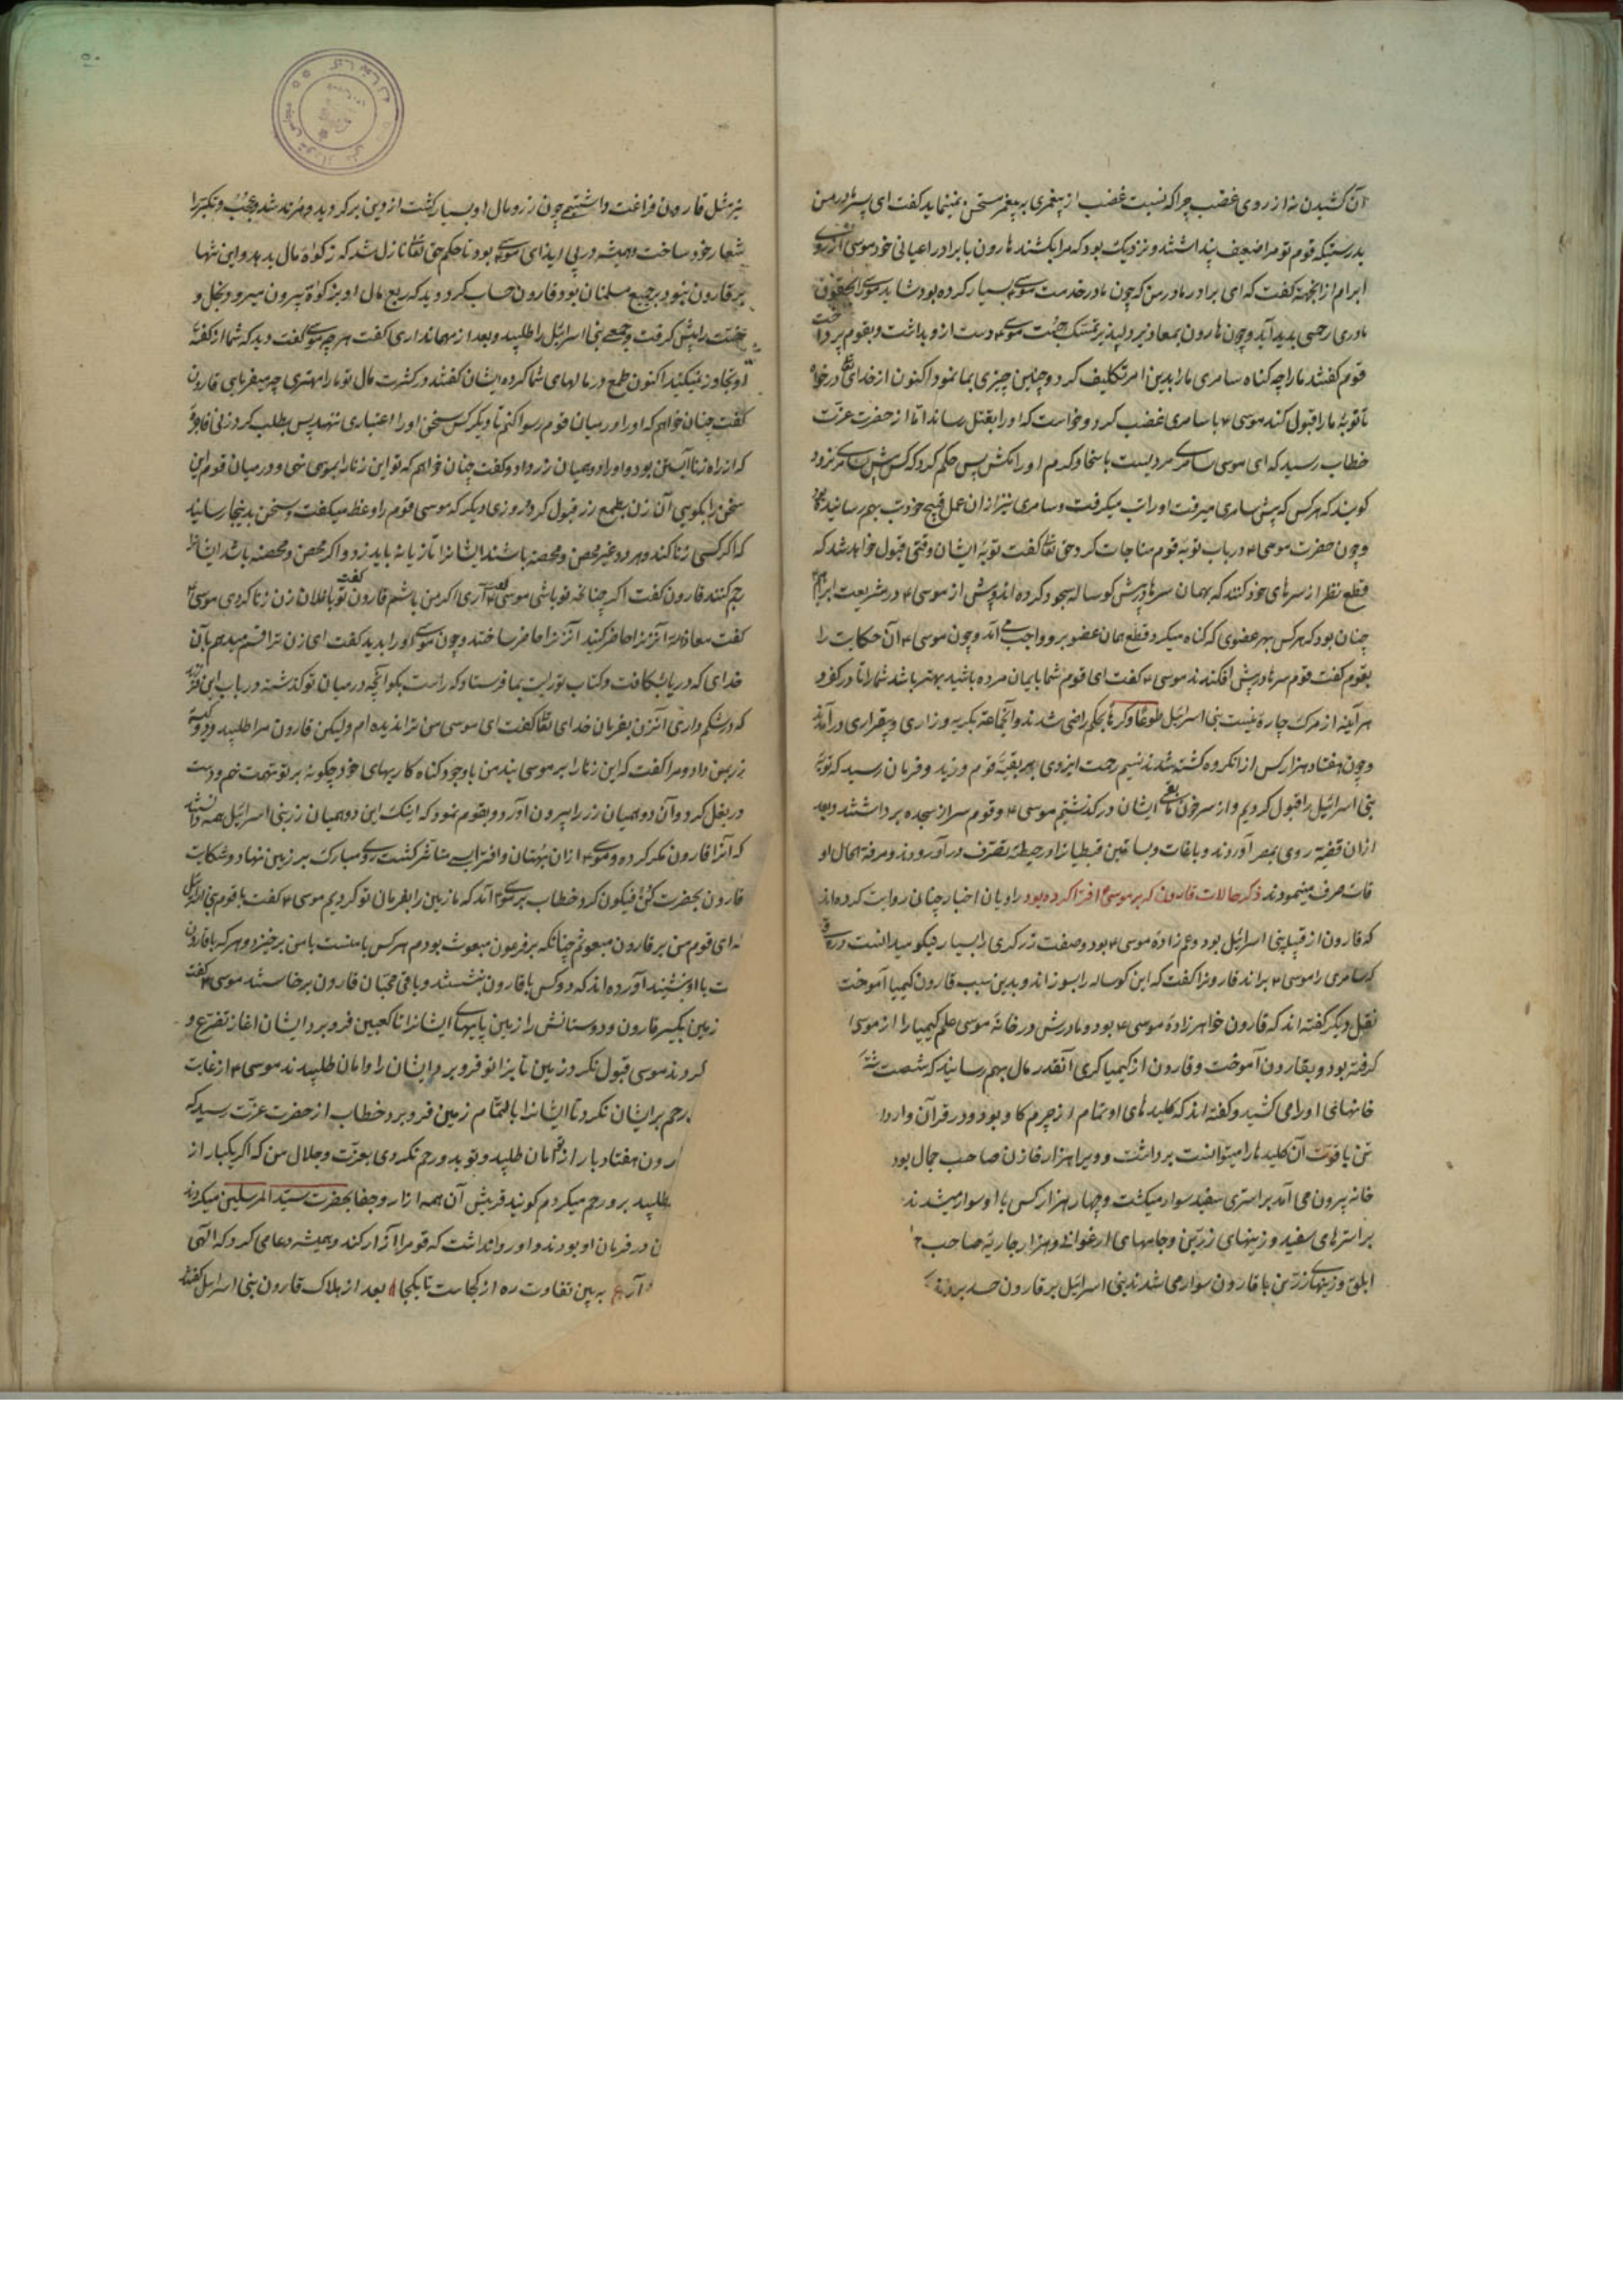 آن کشیدن نه از روی غضب چرا که نسبت غضب از پیغمبری بر پیغمبر مستحسن نمینماید گفت ای پسر مادر من
بدرستیکه قوم تو مرا ضعیف پنداشتند و نزدیک بود که مرا بکشند هارون با برادر اعیانی خود موسی از روی
ابرام از انجهة گفت که ای برادر مادر من که چون مادر خدمت موسی بسیار کرده بود شاید موسی را بحقوق
مادری رحمی بدید آید و چون هارون بمعاذیر دلپذیر تمسک جست موسی ۴ دست ازو بداشت و بقوم پرداخت
قوم گفتند ما را چه گناه سامری ما را بدین امر تکلیف کرد و چنین چیزی بما نمود اکنون از خدای درخواه
تا توبهٔ ما را قبول کند موسی ۴ با سامری غضب کرد و خواست که او را بقتل رساند اما از حضرت عزّت
خطاب رسید که ای موسی سامری مردیست با سخا و کرم او را مکش پس حکم کرد که کس پیش سامری نرود
گویند که هر کس که پیش سامری میرفت او را تب میگرفت و سامری نیز از ان عمل قبیح خود تب بهم رسانید
و چون حضرت موسی ۴ در باب توبه قوم مناجات کرد حق تعالی گفت توبهٔ ایشان وقتی قبول خواهد شد که
قطع نظر از سرهای خود کنند که بهمان سرها پیش گوساله سجود کرده اند پیش از موسی ۴ در شریعت ابراهیم
چنان بود که هر کس بهر عضوی که گناه میکرد قطع همان عضو برو واجب می آمد و چون موسی ۴ آن حکایت را
بقوم گفت قوم سرها در پیش افکندند موسی ۴ گفت ای قوم شما با ایمان مرده باشید بهتر باشد شما را تا در کفر و
هر آینه از مرگ چاره نیست بنی اسرائیل طوعا و کرها بحکم راضی شدند و آنجماعة بگریه و زاری و بیقراری درآمدند
و چون هفتاد هزار کس از انگروه کشته شدند نسیم رحمت ایزدی بر بقیّهٔ قوم وزید و فرمان رسید که توبهٔ
بنی اسرائیل را قبول کردیم و از سر خون باقی ایشان درگذشتیم موسی ۴ و قوم سر از سجده برداشتند و بعد
ازان قضیّه روی بمصر آوردند و باغات و بساتین قبطیانرا در حیطهٔ تصرّف درآوردند و مرفّه الحال او
قات صرف مینمودند ذکر حالات قارون که بر موسی افترا کرده بود راویان اخبار چنان روایت کرده اند
که قارون از قبیلهٔ بنی اسرائیل بود و عم زادهٔ موسی ۴ بود و صفت زرگری را بسیار نیکو میدانست در وقتی
که سامری را موسی ۴ براند قارونرا گفت که این گوساله را بسوزاند و بدین سبب قارون کیمیا آموخت
نقل دیگر گفته اند که قارون خواهرزادهٔ موسی ۴ بود و مادرش در خانهٔ موسی علم کیمیا را از موسی
گرفته بود و بقارون آموخت و قارون از کیمیاگری آنقدر مال بهم رسانید که شصت شتر
خانهای او را می کشید و گفته اند که کلیدهای او تمام از چرم گاو بود و در قرآن وارد
تن با قوت آن کلیدها را میتوانست برداشت و ویرا هزار خازن صاحب جمال بود
خانه بیرون می آمد بر استری سفید سوار میگشت و چهار هزار کس با او سوار میشدند
بر استرهای سفید و زینهای زرّین و جامهای ارغوانی و هزار جاریهٔ صاحب
ابلق و زینهای زرّین با قارون سوار می شدند بنی اسرائیل بر قارون حسد بردند
نیز مثل قارون فراغت داشتیم چون زر و مال او بسیار گشت از دین برگردید و مرتد شد و عجب و تکبّر را
شعار خود ساخت و همیشه در پی ایذای موسی بود تا حکم حق تعالی نازل شد که زکوة مال بدهد و این تنها
بر قارون نبود بر جمیع مسلمانان بود قارون حساب کرد دید که ربع مال او بزکوة بیرون میرود بخل و
خسّت را پیش گرفت و جمعی بنی اسرائیل را طلبید و بعد از مهمانداری گفت هر چه موسی گفت دید که شما از گفتهٔ
او تجاوز نمیکنید اکنون طمع در مالهای شما کرده ایشان گفتند در کثرت مال تو ما را مهتری چه میفرمایی قارون
گفت چنان خواهم که او را در میان قوم رسوا کنم تا دیگر کس سخن او را اعتباری ننهد پس بطلب کرد زنی فاجره
که از راه زنا آبستن بود و او را دو همیان زر داد و گفت چنان خواهم که تو این زنا را بموسی نهی و در میان قوم این
سخن را بگویی آن زن بطمع زر قبول کرد و روزی دیگر که موسی قوم را وعظ میگفت و سخن بدینجا رسانید
که اگر کسی زنا کند و هر دو غیر محصن و محصنه باشند ایشانرا تازیانه باید زد و اگر محصن و محصنه باشد ایشانرا
رجم کنند قارون گفت اگر چنانچه تو باشی موسی گفت آری اگر من باشم قارون گفت تو با فلان زن زنا کردی موسی ۴
گفت معاذ الله آنزنرا حاضر کنید آنزنرا حاضر ساختند و چون موسی او را بدید گفت ای زن ترا قسم میدهم بآن
خدای که دریا بشکافت و کتاب توریت بما فرستاد که راست بگو آنچه در میان تو گذشته در باب این فرزند
که در شکم داری آنزن بفرمان خدای تعالی گفت ای موسی من ترا ندیده ام ولیکن قارون مرا طلبید و دو کیسه
زر بمن داد و مرا گفت که این زنا را بر موسی بند من با وجود گناه کاریهای خود چگونه بر تو تهمت نهم و دست
در بغل کرد و آن دو همیان زر را بیرون آورد و بقوم نمود که اینک این دو همیان زر بنی اسرائیل همه دانستند
که آنرا قارون مکر کرده و موسی ۴ ازان بهتان و افترایی متأثّر گشت روی مبارک بر زمین نهاد و شکایت
قارون بحضرت کن فیکون کرد خطاب بموسی ۴ آمد که ما زمین را بفرمان تو کردیم موسی ۴ گفت با قوم بنی اسرائیل
که ای قوم من بر قارون مبعوثم چنانکه بر فرعون مبعوث بودم هر کس با منست با من برخیزد و هر که با قارون
ت با او بنشیند آورده اند که دو کس با قارون بنشستند و باقی محبّان قارون برخاستند موسی ۴ گفت
زمین بگیر قارون و دوستانش را زمین پایهای ایشانرا تا کعبین فرو برد ایشان اغاز تضرّع و
کردند موسی قبول نکرد زمین تا بزانو فرو برد ایشان را و امان طلبیدند موسی ۴ از غایت
رحم بر ایشان نکرد تا ایشانرا بالتمام زمین فرو برد خطاب از حضرت عزّت رسید که
رون هفتاد بار از تو امان طلبید و تو بدو رحم نکردی بعزّت و جلال من که اگر یکبار از
طلبید برو رحم میکردم گویند قریش آن همه ازار و جفا بحضرت سیّد المرسلین میکردند
ن در فرمان او بودند و او روا نداشت که قوم را آزار کند و همیشه دعا می کرد که الهی
به بین تفاوت ره از کجاست تا بکجا بعد از هلاک قارون بنی اسرائیل گفتند